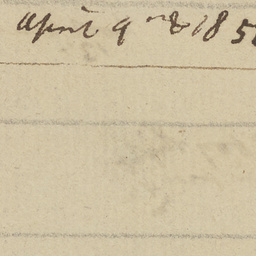 April 9 185